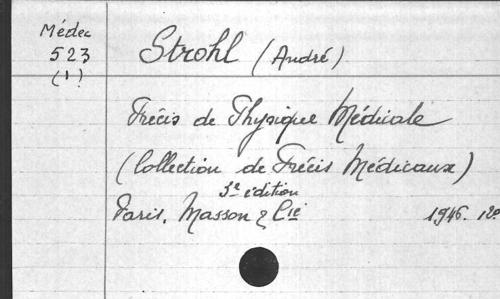 Médec
523
(1)
Strohl (André)
Précis de Physique Médicale
(Collection de Précis Médicaux)
3e édition
Paris, Masson & Cie 1946. 12o